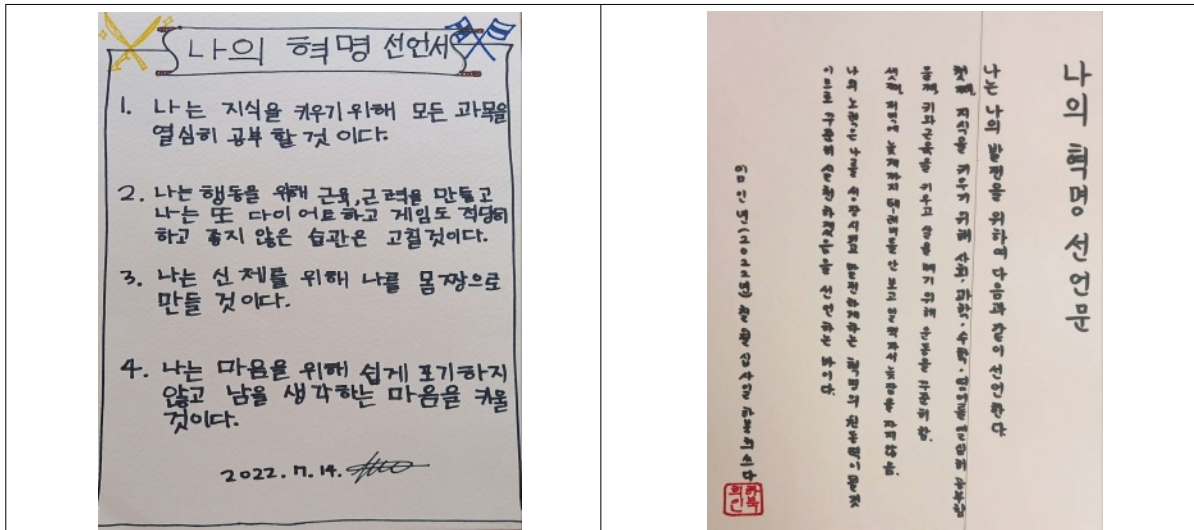 나의 혁명 선언서
1. 나는 지식을 키우기 위해 모든 과목을
열심히 공부 할 것 이다.
2. 나는 행동을 위해 근육, 근력을 만들고
나는 또 다이어트하고 게임도 적당히
하고 좋지 않은 습관은 고칠것이다.
3. 나는 신체를 위해 나를 몸짱으로
만들 것이다.
4. 나는 마음을 위해 쉽게 포기하지
않고 남을 생각하는 마음을 키울
것이다.
2022. 7. 14.
나의 혁명 선언문
나는 나의 발전을 위하여 다음과 같이 선언한다
첫째, 지식을 키우기 위해 사회·과학·수학·영어를 열심히 공부함
둘째, 키와 근육을 키우고 살을 빼기 위해 운동을 꾸준히 함.
셋째, 저녁에 늦게까지 텔레비를 안 보고 일찍 자서 늦잠을 자지 않음.
나의 노력은 나를 성장시키고 발전하게 하는 혁명의 원동력이 될 것
이므로 꾸준히 실천하겠음을 선언하는 바이다.
임인년(2022년) 칠월 십사일 하복희 쓰다